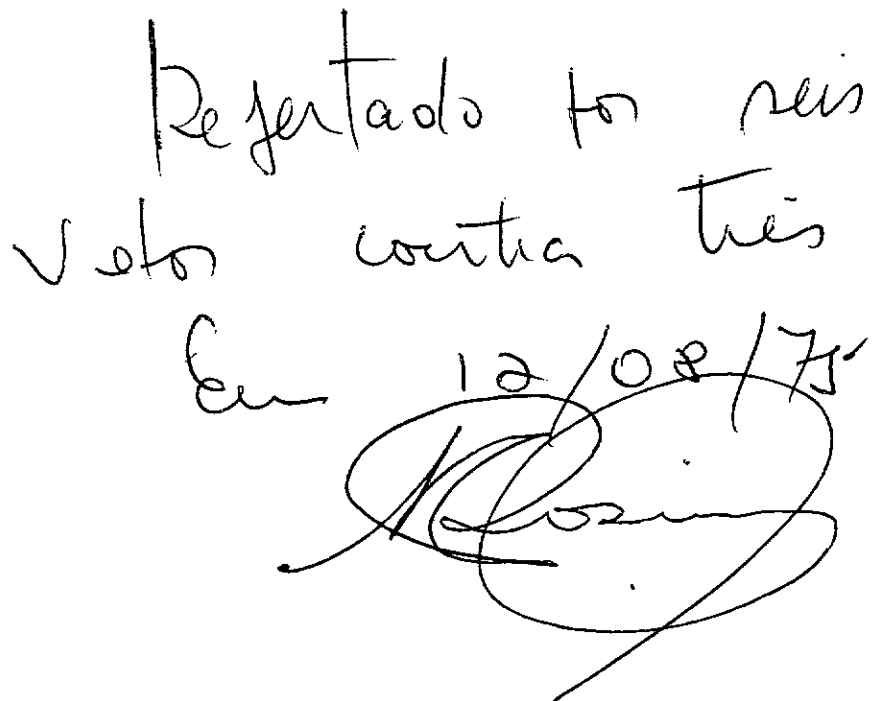 Rejeitado por seis
votos contra três
Em 12/08/75